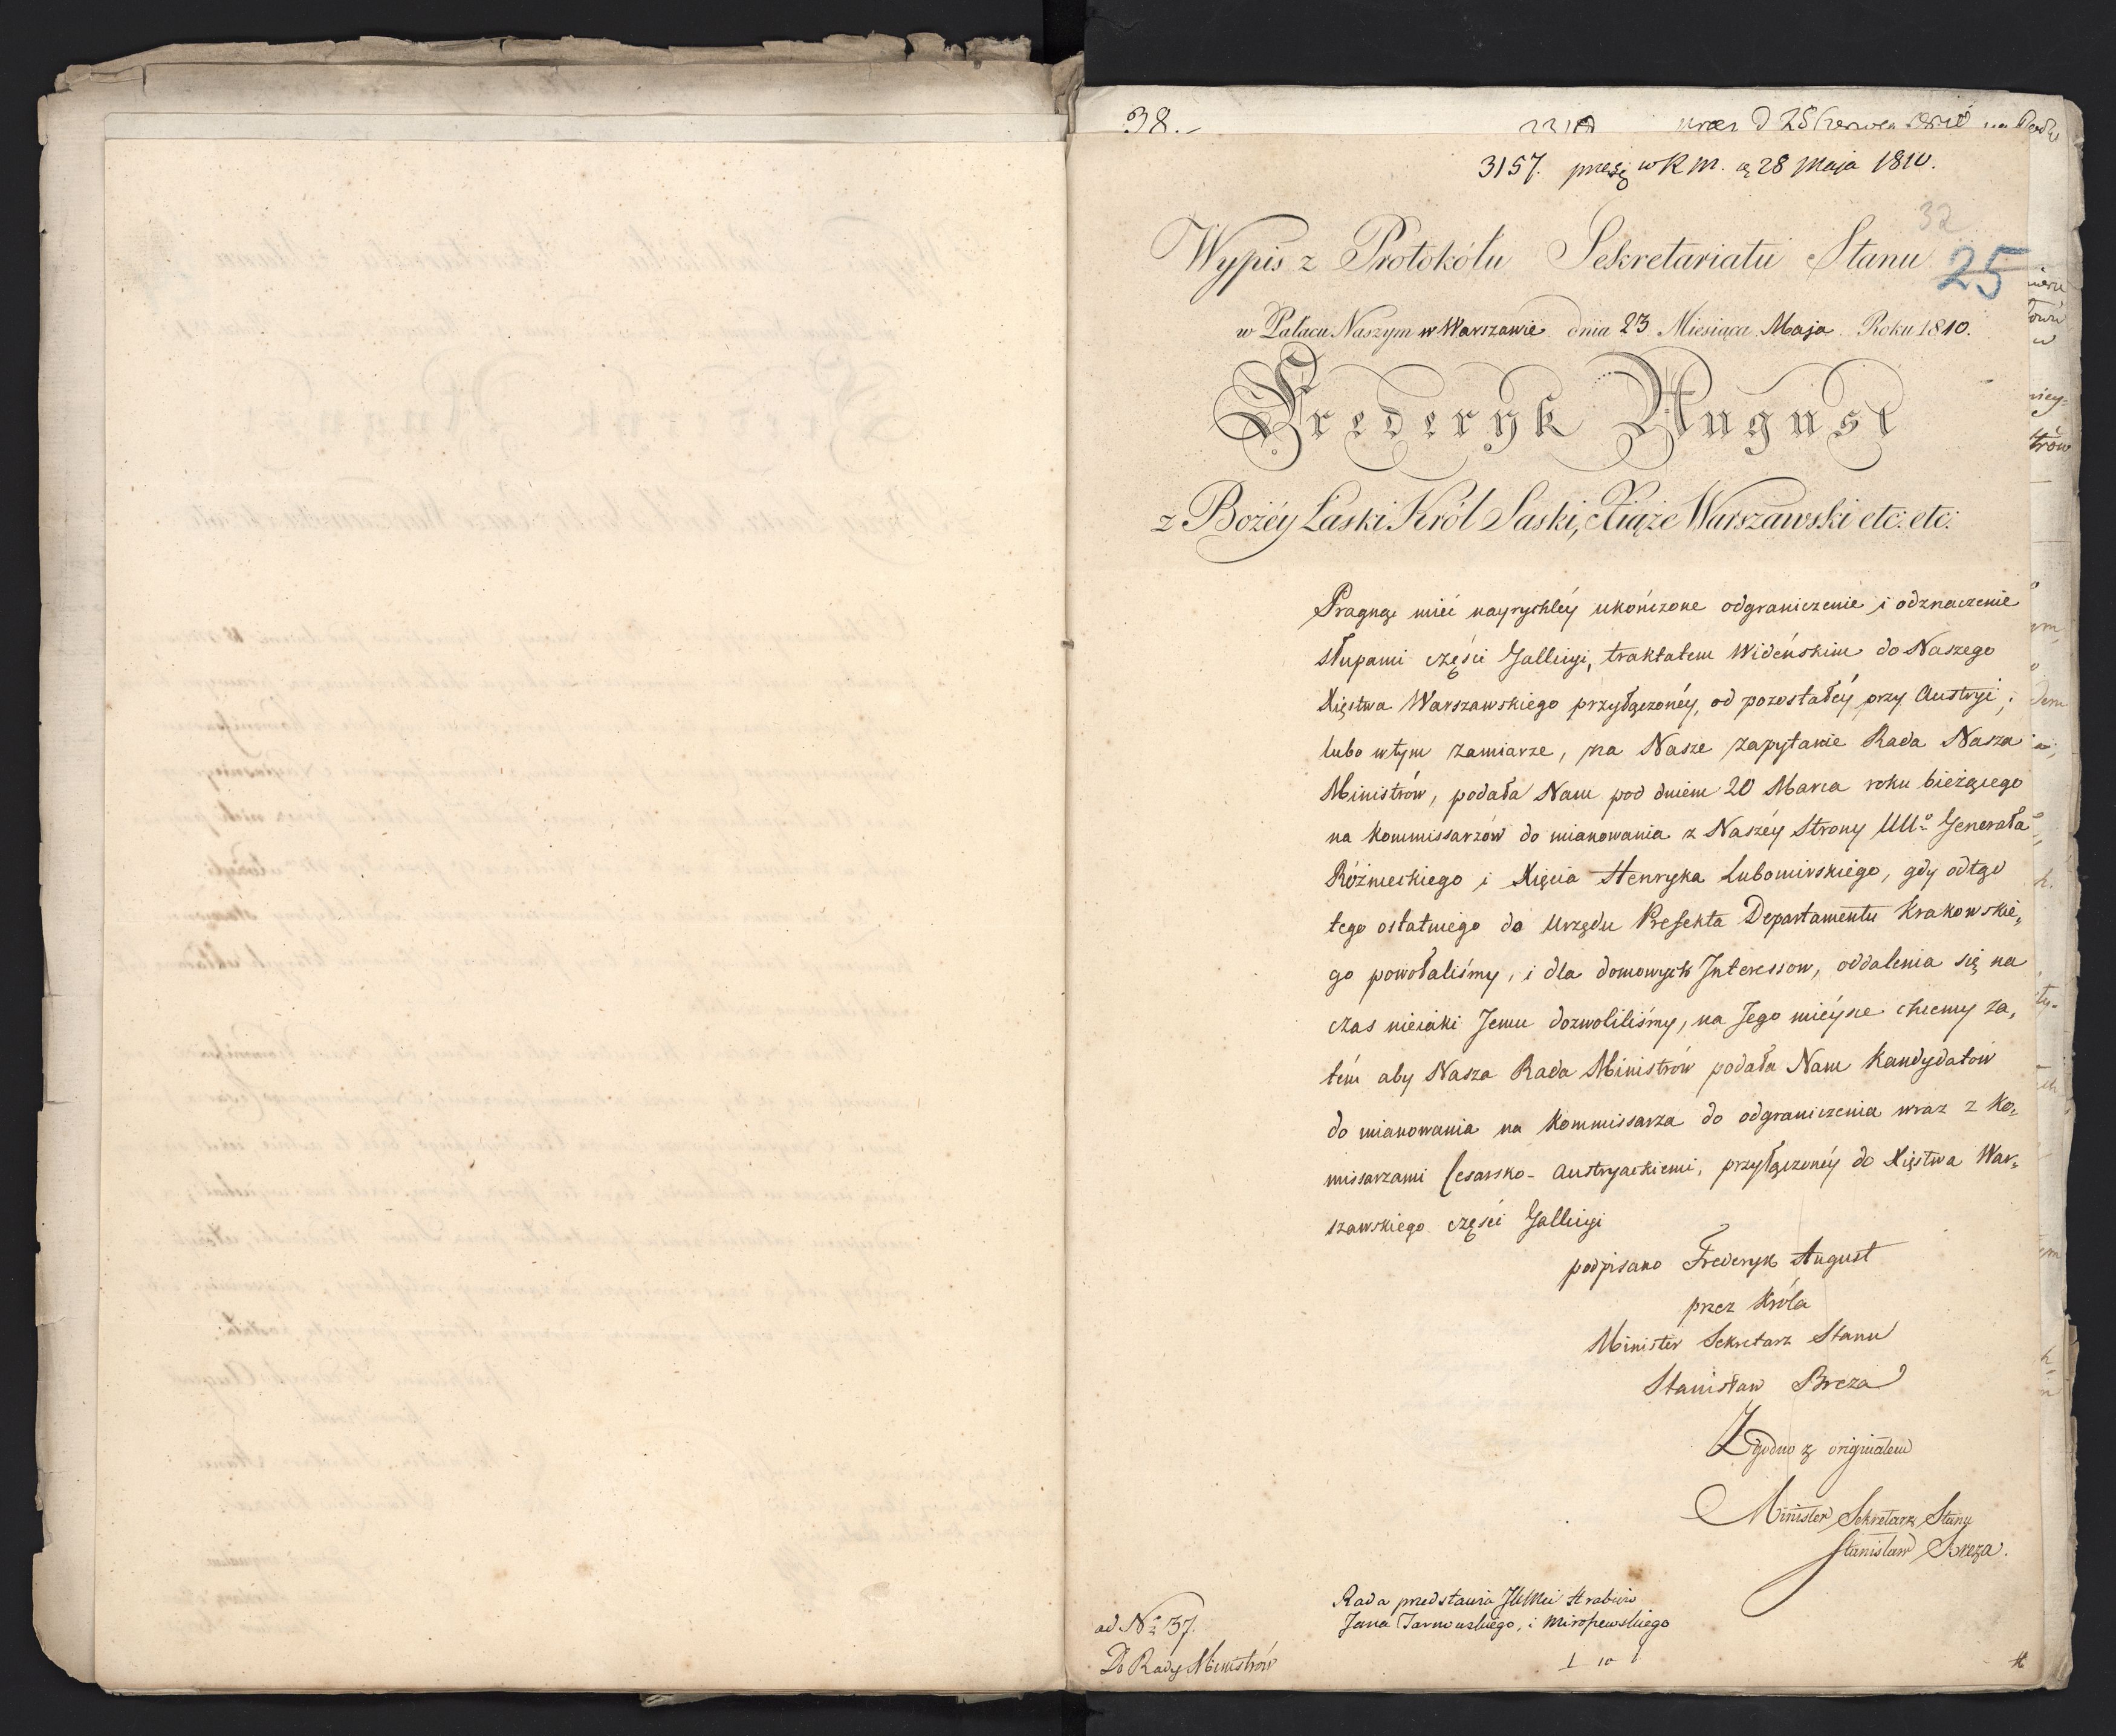 38.-
3157. w R M. 28 Maja 1810.
32
Wypis z Protokółu Sekretariatu Stanu
25
w Pałacu Naszym w Warszawie dnia 23 Miesiąca Maja Roku 1810.
Frederyk August
z Bożéy Łaski Król Saski, Xiąże Warszawski etc: etc:
Pragnąc mieć nayrychléy ukończone odgraniczenie i odznaczenie
słupami części Gallicyi, traktatem Wideńskim do Naszego
Xięstwa Warszawskiego przyłączonéy, od pozostałéy przy Austryi;
lubo w tym zamiarze, na Nasze zapytanie Rada Nasza
Ministrów, podała Nam pod dniem 20 Marca roku bieżącego
na Kommissarzów do mianowania z Naszéy Strony Generała
Różnieckiego i Xięcia Henryka Lubomirskiego, gdy odtąd
tego ostatniego do Urzędu Prefekta Departamentu Krakowskie,
go powołaliśmy, i dla domowych Interessow, oddalenia się na
czas nieiaki Jemu dozwoliliśmy, na Jego mieysce chcemy za,
tém aby Nasza Rada Ministrów podała Nam Kandydatów
do mianowania na Kommissarza do odgraniczenia wraz z Ko,
missarzami Cesarsko-Austryackiemi, przyłączonéy do Xięstwa War,
szawskiego części Gallicyi
podpisano Frederyk August
przez Króla
Minister Sekretarz Stanu
Stanisław Breza
Zgodno z originałem
Minister Sekretarz Stanu
Stanisław Breza.
Rada przedstawia Hrabiów
Jana Tarnowskiego, i
ad Nº 37.
Do Rady Ministrów